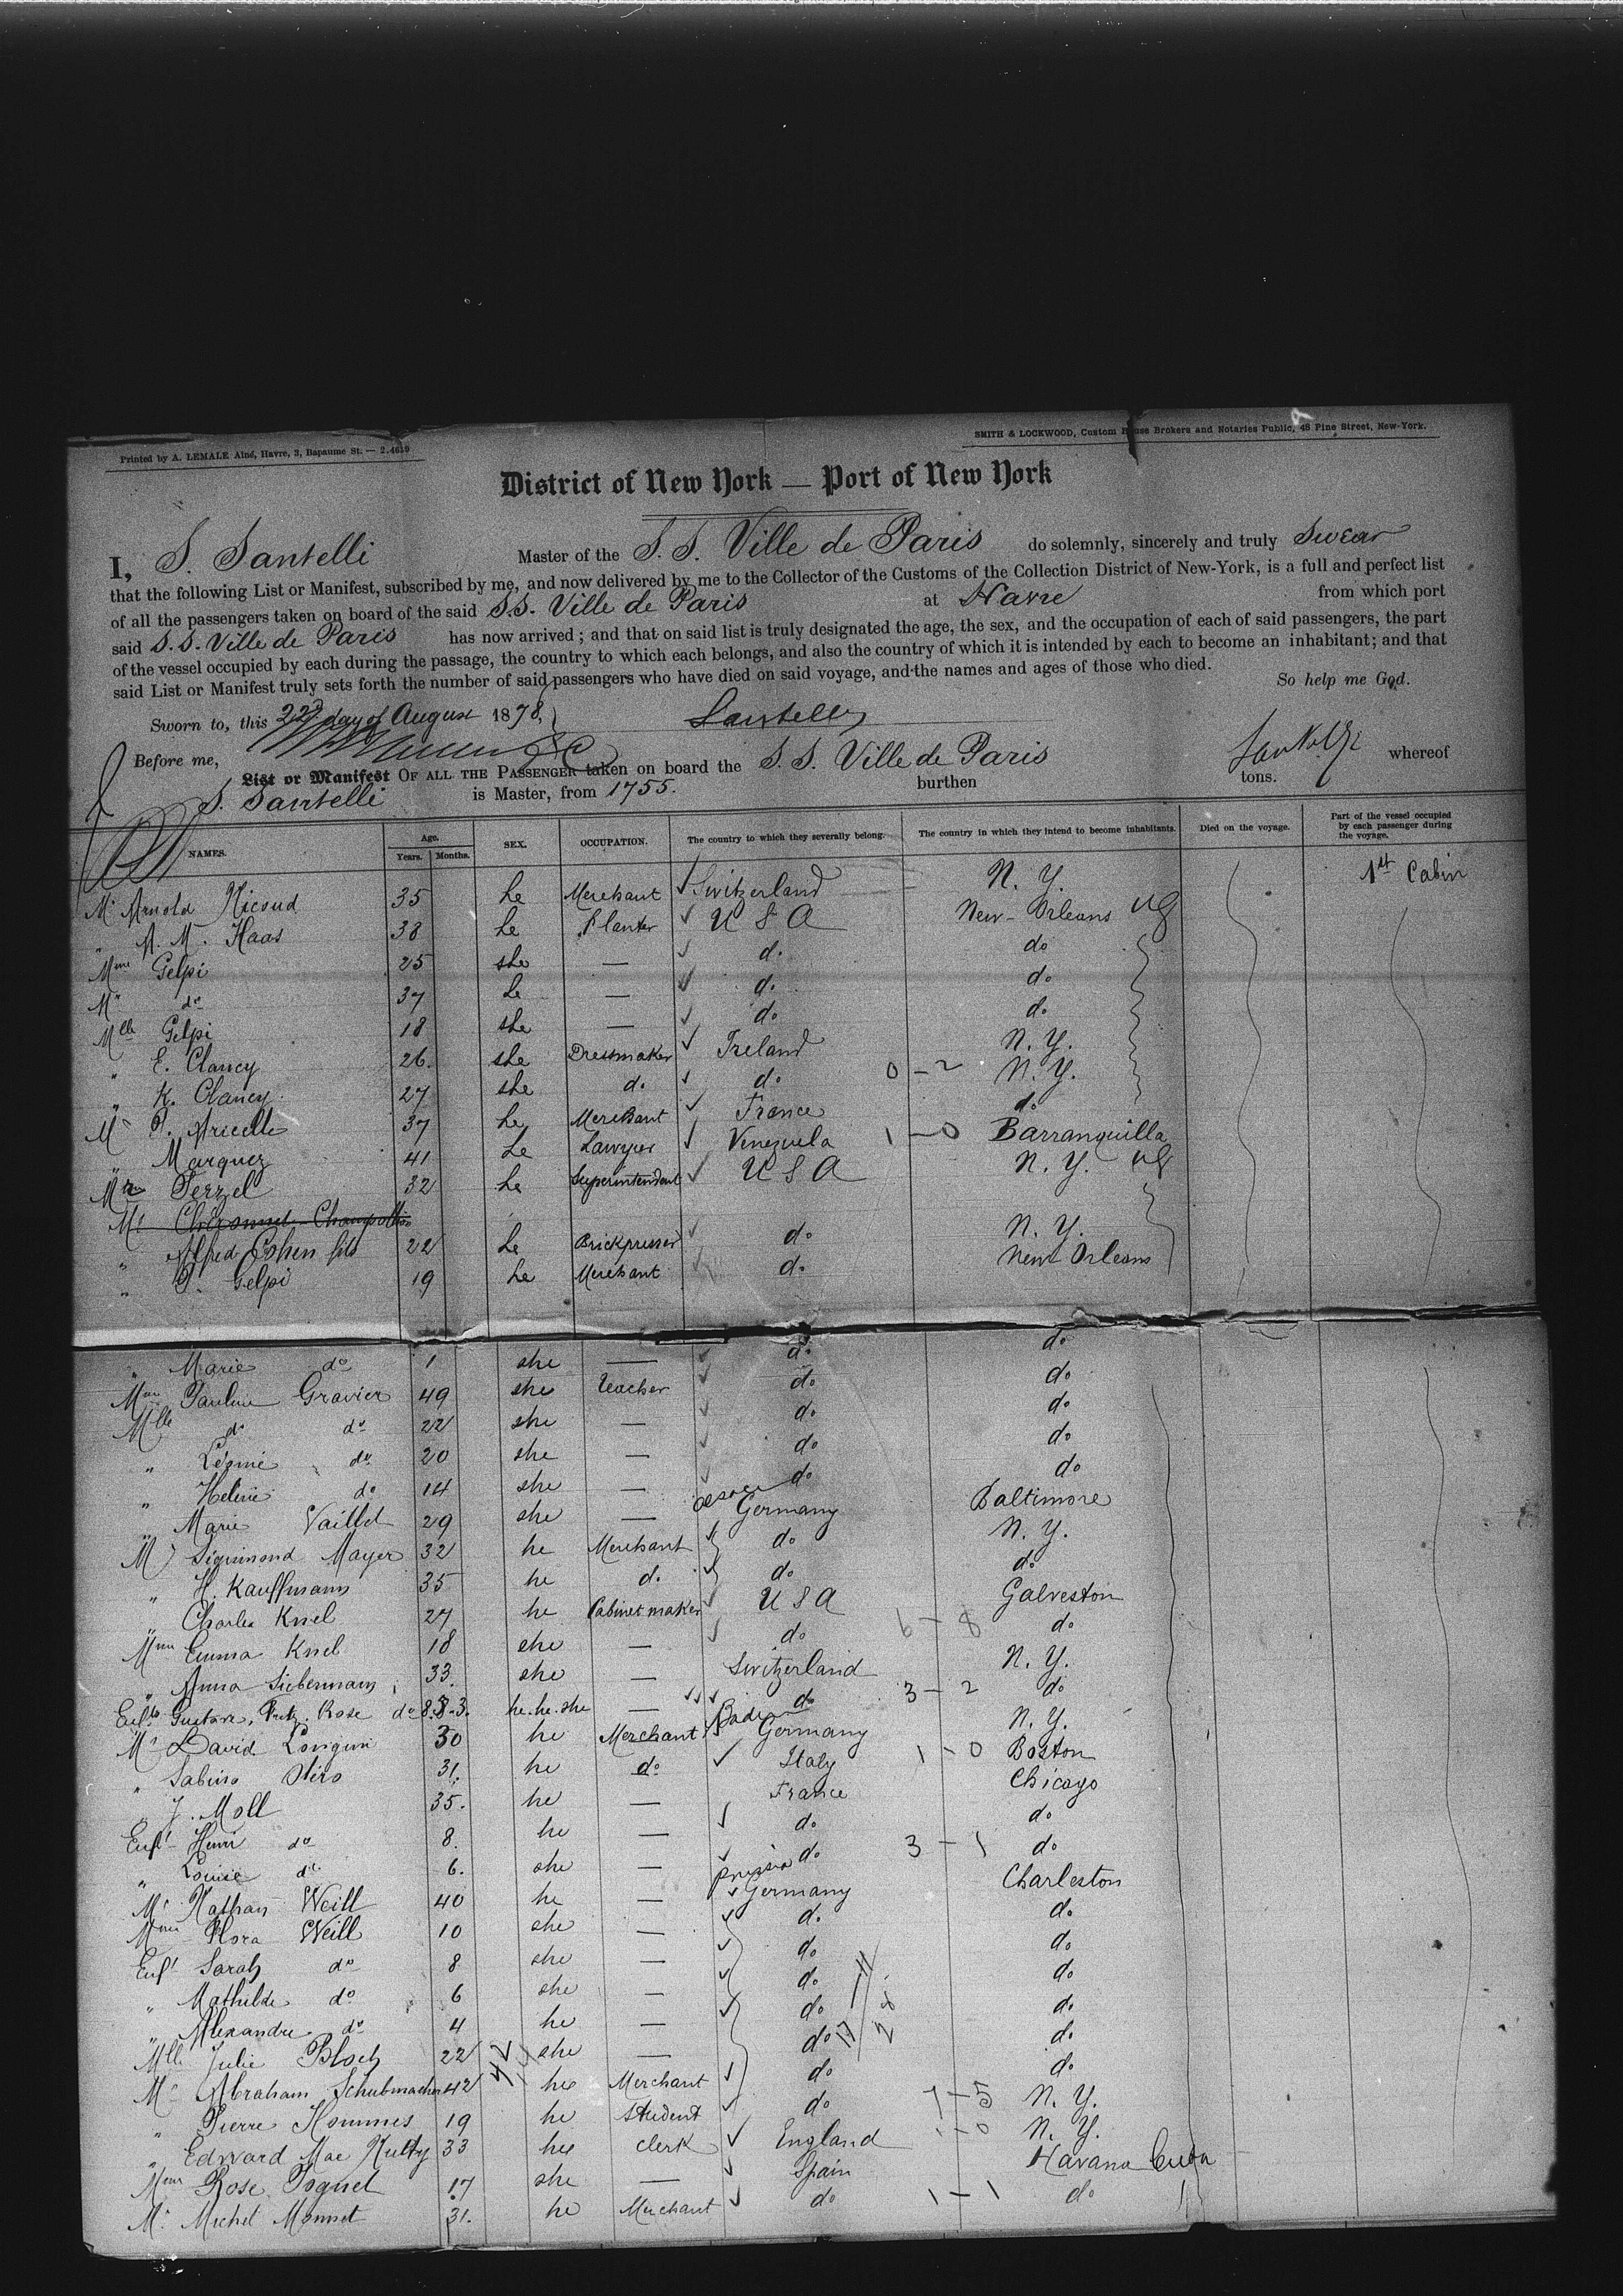 SMITH & LOCKWOOD, Custom House Brokers and Notaries Public, 48 Pine Street, New-York.
Printed by A. LEMALE Ainé, Havre, 3, Bapaume St. — 2.4639
District of New York — Port of New York
I, S. Santelli Master of the S. S. Ville de Paris do solemnly, sincerely and truly Swear
that the following List or Manifest, subscribed by me, and now delivered by me to the Collector of the Customs of the Collection District of New-York, is a full and perfect list
of all the passengers taken on board of the said S.S. Ville de Paris at Havre from which port
said S.S. Ville de Paris has now arrived; and that on said list is truly designated the age, the sex, and the occupation of each of said passengers, the part
of the vessel occupied by each during the passage, the country to which each belongs, and also the country of which it is intended by each to become an inhabitant; and that
said List or Manifest truly sets forth the number of said passengers who have died on said voyage, and the names and ages of those who died.
So help me God.
Sworn to, this 22d day of August 1878, Santelli
Before me,
List or Manifest OF ALL THE PASSENGER taken on board the S. S. Ville de Paris whereof
S. Santelli is Master, from 1755. burthen tons.
NAMES. Age. Years. Months. SEX. OCCUPATION. The country to which they severally belong. The country in which they intend to become inhabitants. Died on the voyage. Part of the vessel occupied by each passenger during the voyage.
Mr Arnold Nicoud 35 he Merchant Switzerland N. Y. 1st Cabin
" A. M. Haas 38 he Planter U S A New-Orleans
Mme Gelpi 25 she — do do
Mr do 37 he — do do
Mlle Gelpi 18 she — do do
" E. Clancy 26. she Dressmaker Ireland N. Y.
" K. Clancy 27 she do do 0-2 N. Y.
Mr P. Aricelle 37 he Merchant France do
" Marquez 41 he Lawyer Venezuela 1-0 Barranquilla
Mr Perzel 32 he Superintendent U S A N. Y.
" Alfred Cohen fils 22 he Brickpresser do N. Y.
" P. Gelpi 19 he Merchant do New Orleans
" Marie do 1 she — do do
Mme Pauline Gravier 49 she teacher do do
Mlle do do 22 she — do do
" Léonie do 20 she — do do
" Helene do 14 she — do do
" Marie Vailld 29 she — Germany Baltimore
Mr Sigismond Mayer 32 he Merchant do N. Y.
" H. Kauffmann 35 he do do do
" Charles Knel 27 he Cabinet maker U S A Galveston
Mme Emma Knel 18 she — do 6-8 do
" Anna Siebermann 33. she — Switzerland N. Y.
Enfts Gustave, Fritz, Rose do 8.8.3. he.he.she — do 3-2 do
Mr David Longini 30 he Merchant Baden Germany N. Y.
" Sabino Otero 31. he do Italy 1-0 Boston
" J. Moll 35. he — France Chicago
Enft Henri do 8. he — do do
" Louise do 6. she — do 3-1 do
Mr Nathan Weill 40 he — Prussia Germany Charleston
Mme Flora Weill 10 she — do do
Enft Sarah do 8 she — do do
" Mathilde do 6 she — do do
" Alexandre do 4 he — do do
Mlle Julie Bloch 22 she — do do
Mr Abraham Schubmacher 42 he Merchant do do
" Pierre Hommes 19 he Student do 7-5 N. Y.
" Edward Mac Nulty 33 he Clerk England 1-0 N. Y.
Mme Rose Poquet 17 she — Spain Havana Cuba
Mr Michel Monnet 31. he Merchant do 1-1 do